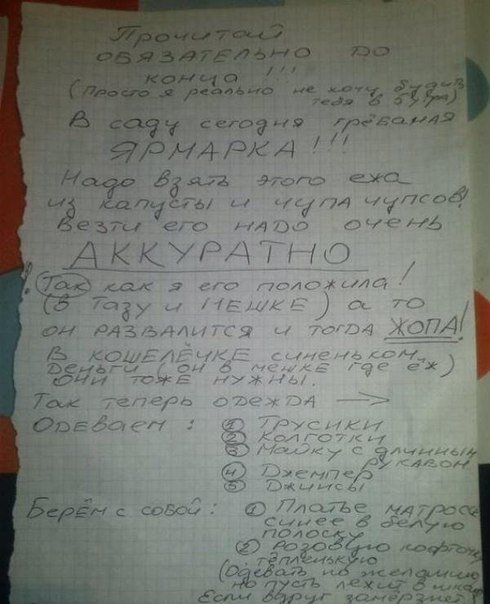 Прочитай
ОБЯЗАТЕЛЬНО ДО
конца !!!
(Просто я реально не хочу будить
тебя в 5 утра)
В саду сегодня грёбаная
ЯРМАРКА !!!
Надо взять этого ежа
из капусты и чупа чупсов!
Везти его НАДО очень
АККУРАТНО
! Так как я его положила!
(В Тазу и МЕШКЕ) а то
он РАЗВАЛИТСЯ и тогда ЖОПА!
В КОШЕЛЁЧКЕ синеньком
деньги (он в мешке где ёж)
ОНИ ТОЖЕ НУЖНЫ.
Так теперь одежда →
Одеваем : ① Трусики
② Колготки
③ Майку с длинным
рукавом
④ Джемпер
⑤ Джинсы
Берём с собой: ① Платье матроса
синее в белую
полоску
② Розовую кофточку
тёпленькую
(Одевать по желанию
но пусть лежит в
Если вдруг замёрзнет